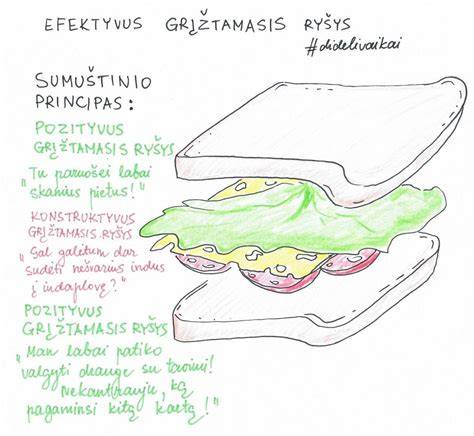 EFEKTYVUS GRĮŽTAMASIS RYŠYS
#didelivaikai
SUMUŠTINIO
PRINCIPAS:
POZITYVUS
GRĮŽTAMASIS RYŠYS
„Tu paruošei labai
skanius pietus!"
KONSTRUKTYVUS
GRĮŽTAMASIS RYŠYS
„Gal galėtum dar
sudėti nešvarius indus
į indaplovę?"
POZITYVUS
GRĮŽTAMASIS RYŠYS
„Man labai patiko
valgyti drauge su tavimi!
Nekantrauju, ką
pagaminsi kitą kartą!"